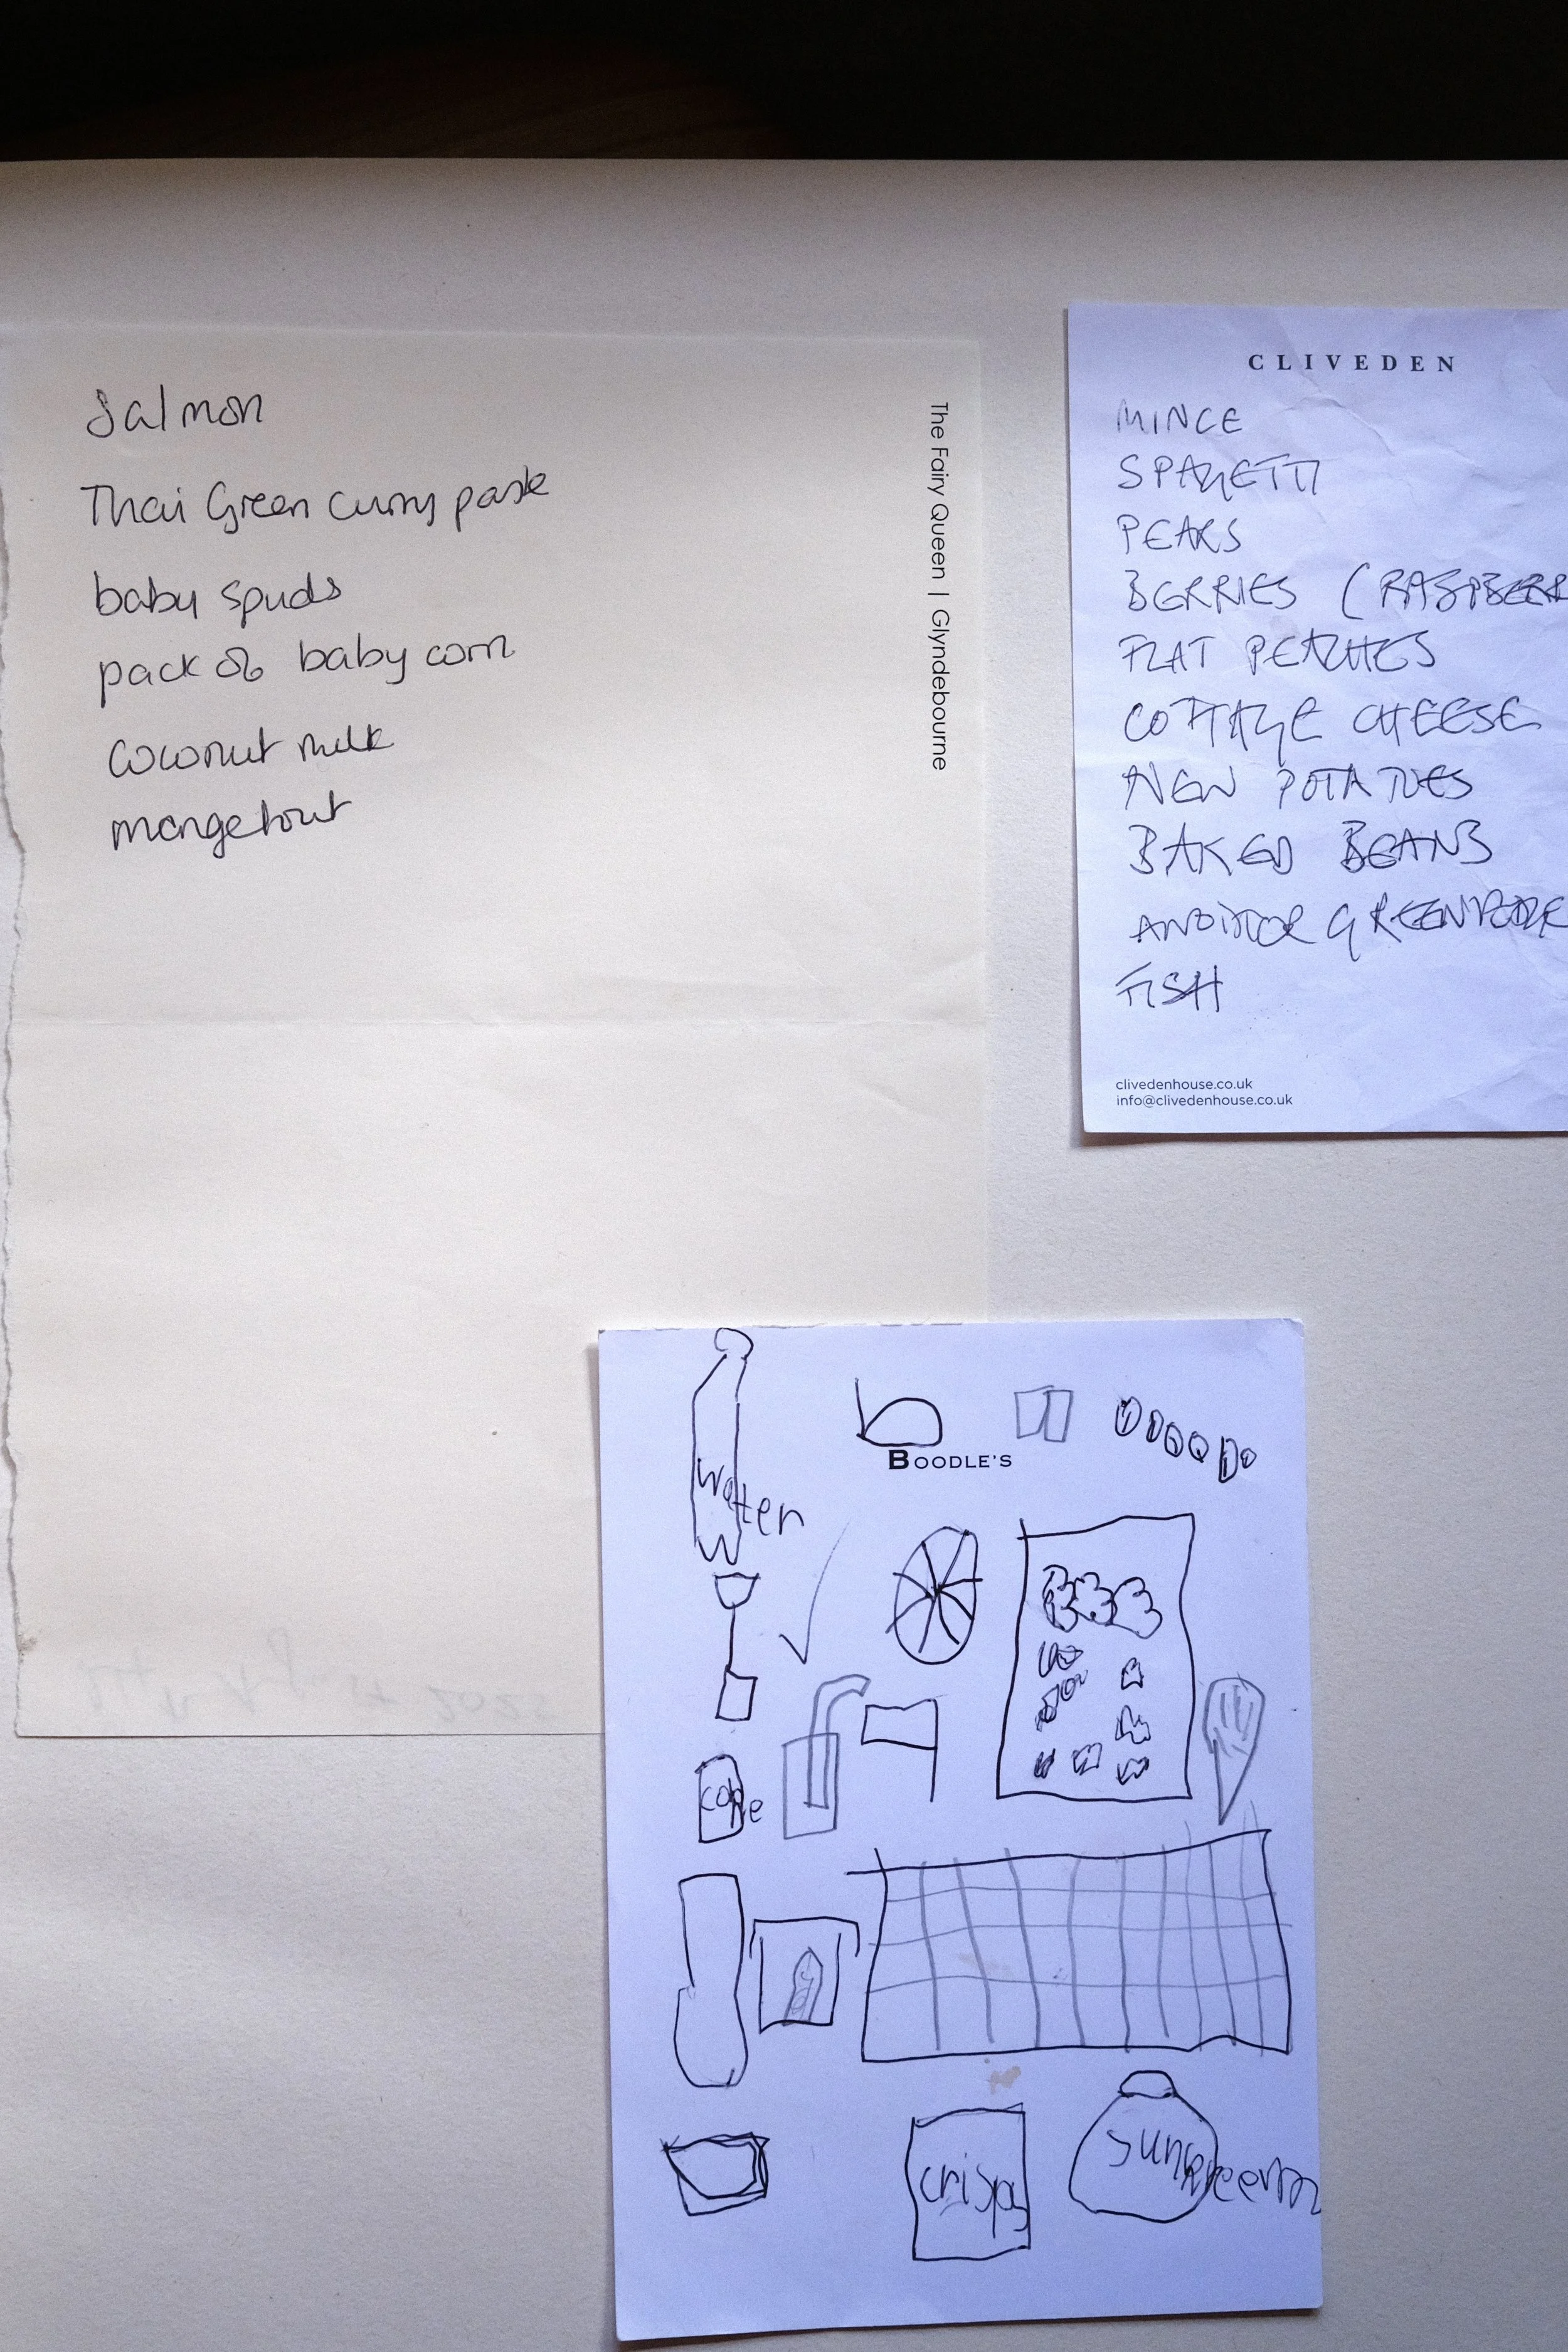 Salmon
Thai Green curry paste
baby spuds
pack of baby corn
Coconut milk
mangetout
The Fairy Queen | Glyndebourne
CLIVEDEN
MINCE
SPAGETTI
PEARS
BERRIES (RASPBERR
FLAT PEACHES
COTTAGE CHEESE
NEW POTATOES
BAKED BEANS
GREEN
FISH
clivedenhouse.co.uk
info@clivedenhouse.co.uk
BOODLE'S
water
coke
crisps